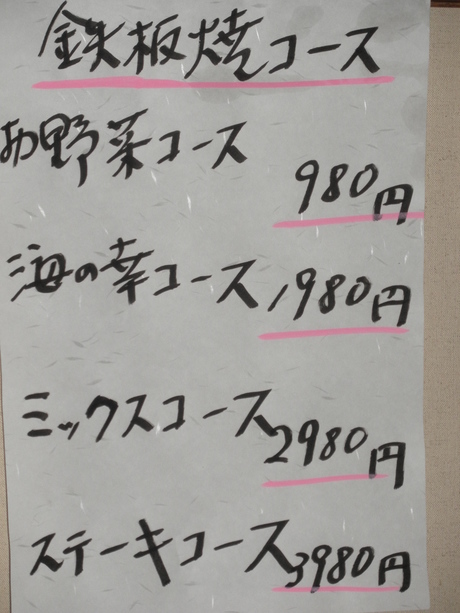 鉄板焼コース
お野菜コース
980円
海の幸コース 1980円
ミックスコース 2980円
ステーキコース 3980円